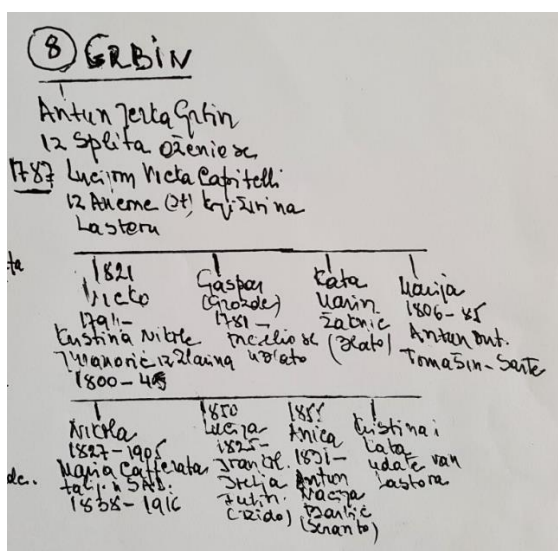 8 GRBIN
Antun Jerka Grbin
iz Splita oženio se
1787 Lucijom Vicka Capitelli
iz (et) na
Lastovu
1821
Vicko
1794-
Kristina Nikole
Ivanović iz Zlarina
1800-45
Gašpar
(Grozde)
1781-
se
u Blato
Kata
Marin
Žaknić
(Blato)
Marija
1806-85
Antun Ant.
Tomašin-Sarte
Nikola
1827-1905
Maria Cafferata
talij. u SAD.
1838-1916
1850
Lucija
1825-
Ivan
(Zido)
1855
Anica
1831-
Antun
(Škranto)
Kristina i
Kata
udate van
Lastova
de.